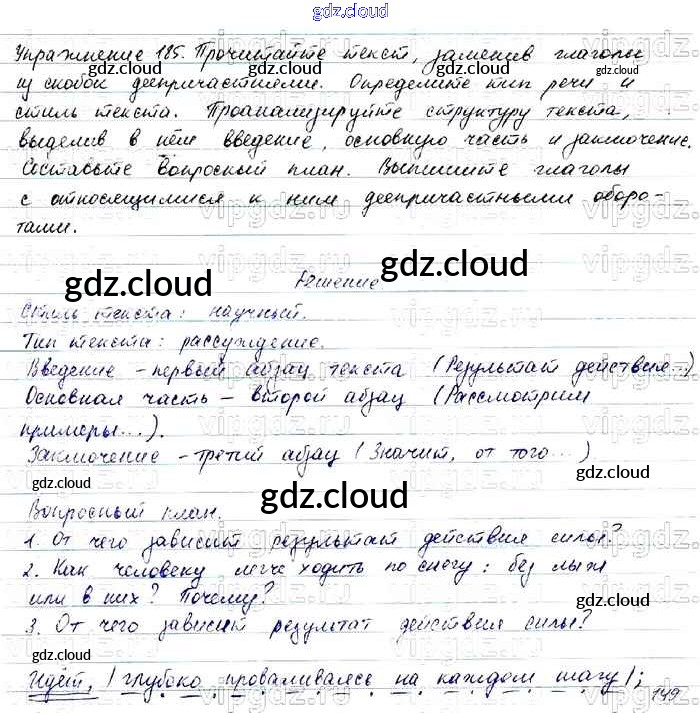 gdz.cloud
Упражнение 185. Прочитайте текст, заменив глаголы
из скобок деепричастиями. Определите тип речи и
стиль текста. Проанализируйте структуру текста,
выделив в нём введение, основную часть и заключение.
Составьте вопросный план. Выпишите глаголы
с относящимися к ним деепричастными оборо-
тами.
Решение
Стиль текста: научный.
Тип текста: рассуждение.
Введение – первый абзац текста (Результат действие...)
Основная часть – второй абзац (Рассмотрим
примеры...).
Заключение – третий абзац (Значит, от того...)
Вопросный план.
1. От чего зависит результат действия силы?
2. Как человеку легче ходить по снегу: без лыж
или в них? Почему?
3. От чего зависит результат действия силы?
Идёт, / глубоко проваливаясь на каждом шагу /;
149